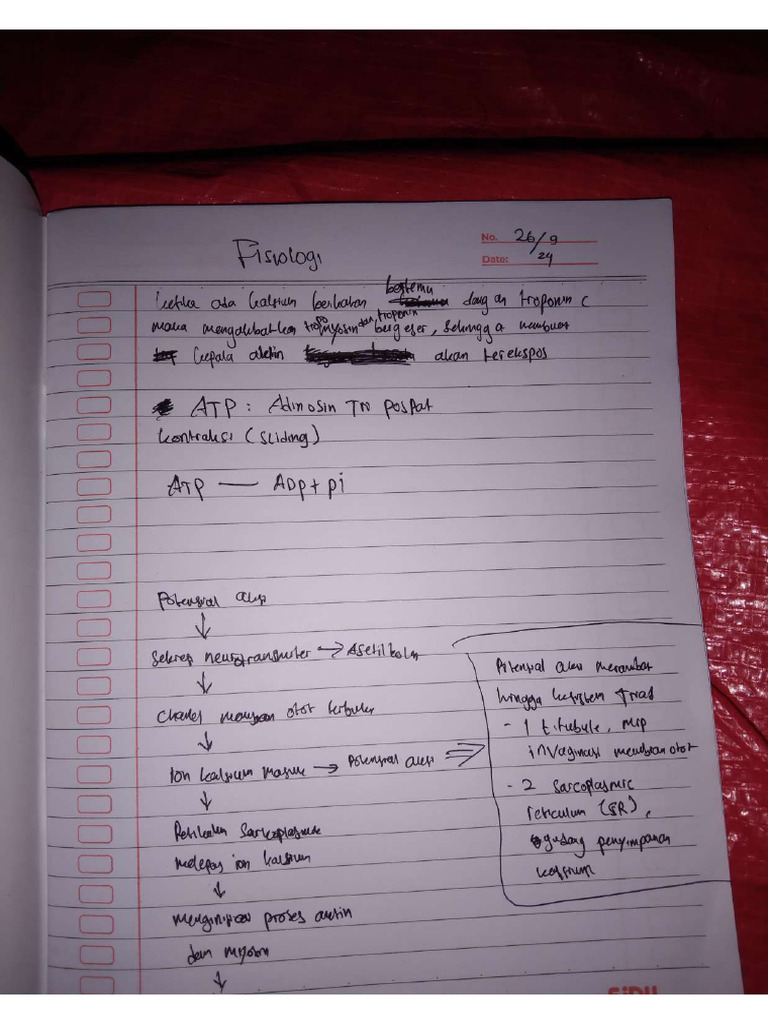 Fisiologi
No. 26/9
Date: 24
Ketika ada kalsium berikatan bertemu dengan troponin C
maka mengakibatkan tropomyosin dan troponin bergeser, sehingga membuat
kepala aktin akan terekspos
ATP : Adinosin Tri pospat
kontraksi (sliding)
ATP — ADP + Pi
Potensial aksi
↓
Sekresi neurotransmiter → Asetilkolin
↓
Chanel membran otot terbuka
↓
Ion kalsium masuk → Potensial aksi ⇒
↓
Retikulum Sarkoplasmik
melepas ion kalsium
↓
menginisiasi proses aktin
dan miyosin
↓
Potensial aksi merambat
hingga kesistem triad
- 1 t.tubule, mrp
invaginasi membran otot
- 2 sarcoplasmic
reticulum (SR),
gudang penyimpanan
kalsium
SiDU